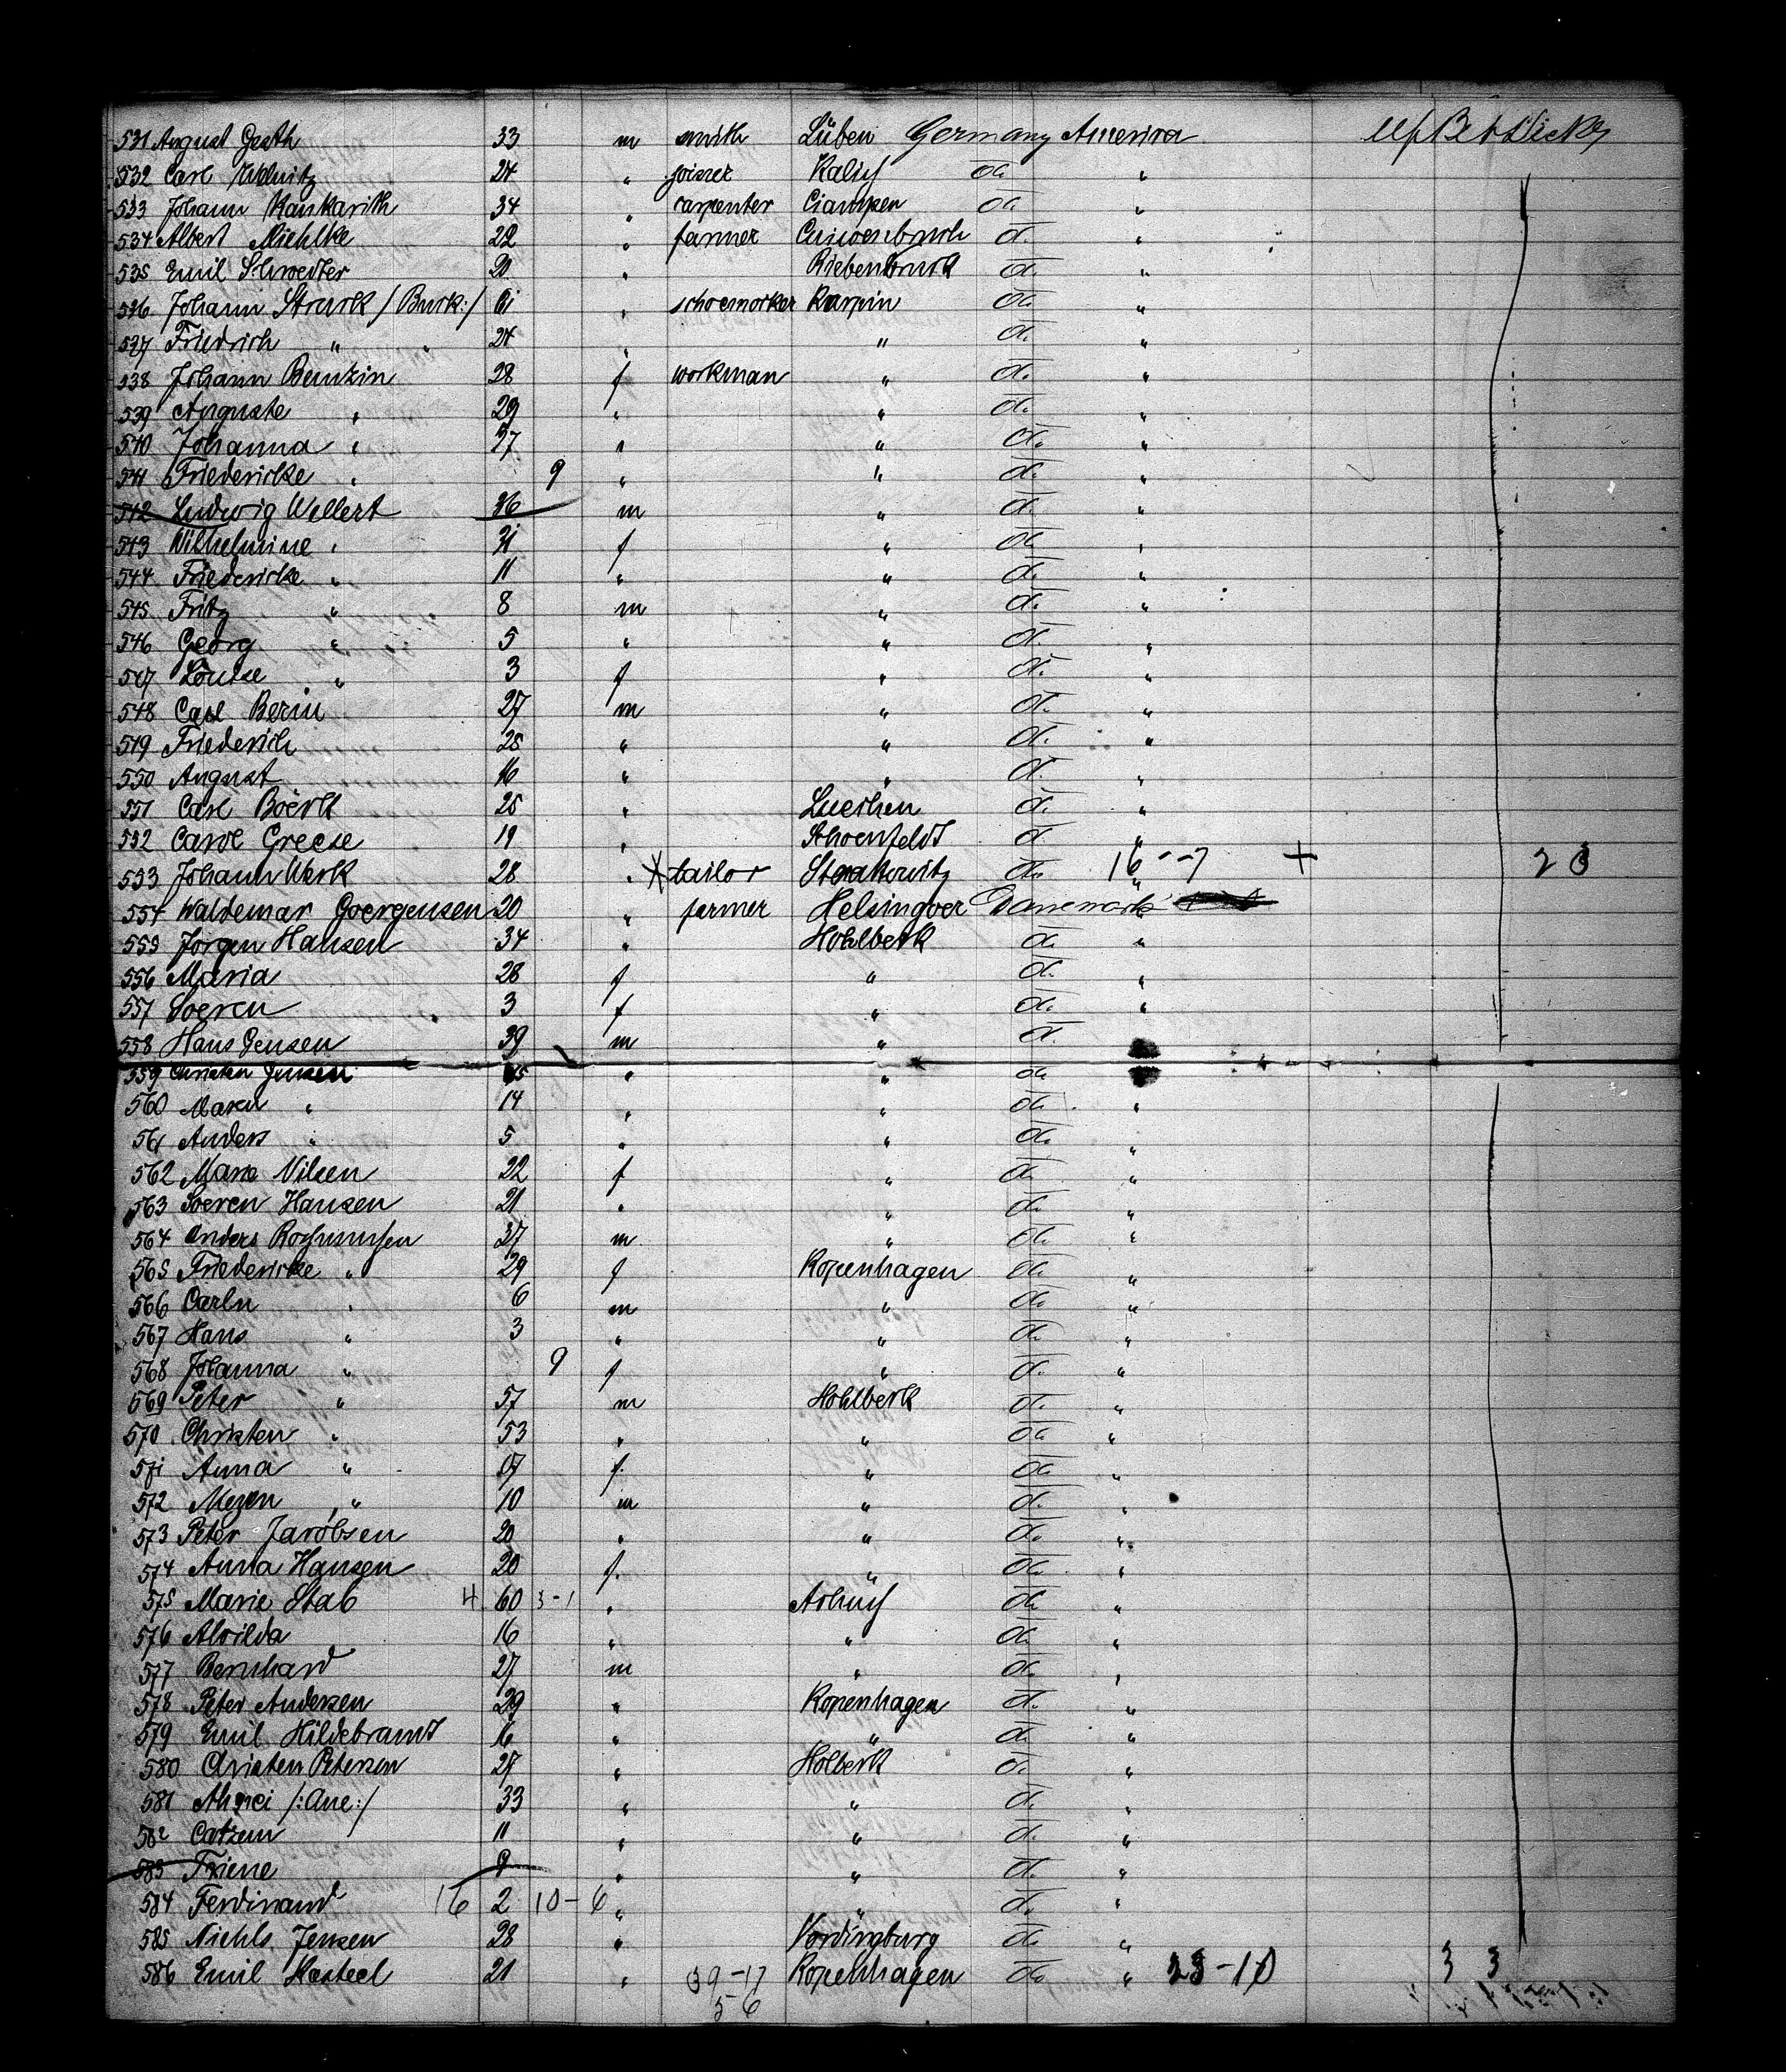 531 August Gerth 33 m smith Lüben Germany America
532 Carl 24 " joiner Kalisch do "
533 Johann Kankarith 34 " carpenter Ciampen do "
534 Albert Miehlke 22 " farmer d. "
535 Emil Schwester 20 " Riebenbruch d. "
536 Johann Strurk /Burk:/ 61 " schoemarker Rarpin do "
537 Friedrich " " 24 " " d. "
538 Johann Benzin 28 f workman " d. "
539 Auguste " 29 " " d. "
540 Johanna " 27 " " d. "
541 Friedericke " 9 " " d. "
542 Ludwig Wellert 36 m " d. "
543 Wilhelmine " 31 f " do "
544 Friedericke " 11 " " d. "
545 Fritz " 8 m " d. "
546 Georg " 5 " " d. "
547 Louise " 3 f " d. "
548 Carl Berin 27 m " d. "
549 Friederich 25 " " d. "
550 August 16 " " d. "
551 Carl Boerk 25 " Luechen d. "
552 Carol Greese 19 " Schoenfeldt d. "
553 Johann Work 28 " X tailor do 16 - - 7 + 23
554 Waldemar Goergensen 20 " farmer Helsingoer Danemark "
555 Jörgen Hansen 34 " Hohlberk d. "
556 Maria 28 f " d. "
557 Soeren 3 f " do "
558 Hans Jensen 39 m " d.
559 Christen Jensen " " do
560 Maren " 14 " " do "
561 Anders " 5 " " do "
562 Mare Nilsen 22 f " do "
563 Soeren Hansen 21 " " do "
564 Anders 37 m " do "
565 Friedericke " 29 f Kopenhagen do "
566 Carln " 6 m " d. "
567 Hans " 3 " " d. "
568 Johanna " 9 f " d. "
569 Peter " 57 m Hohlberk d. "
570 Christen " 53 " " do "
571 Anna " 17 f. " do "
572 " 10 m " d. "
573 Peter Jacobsen 20 " " do "
574 Anna Hansen 20 f. " do "
575 Marie Stab 4 60 3-1 " Arhus do "
576 Alvilda 16 " " do "
577 Bernhard 27 m " do "
578 Peter Andersen 29 " Kopenhagen d. "
579 Emil Hildebrandt 16 " " d. "
580 Christen Petersen 27 " Holberk d. "
581 /:Ane:/ 33 " " d. "
582 11 " " d. "
583 Triene 9 " " d. "
584 Ferdinand 16 2 10-6 " " d. "
585 Niehls Jensen 28 " Vordingburg do "
586 Emil Hasteel 21 " 39-17 Kopenhagen do " 23-10 3 3
5-6